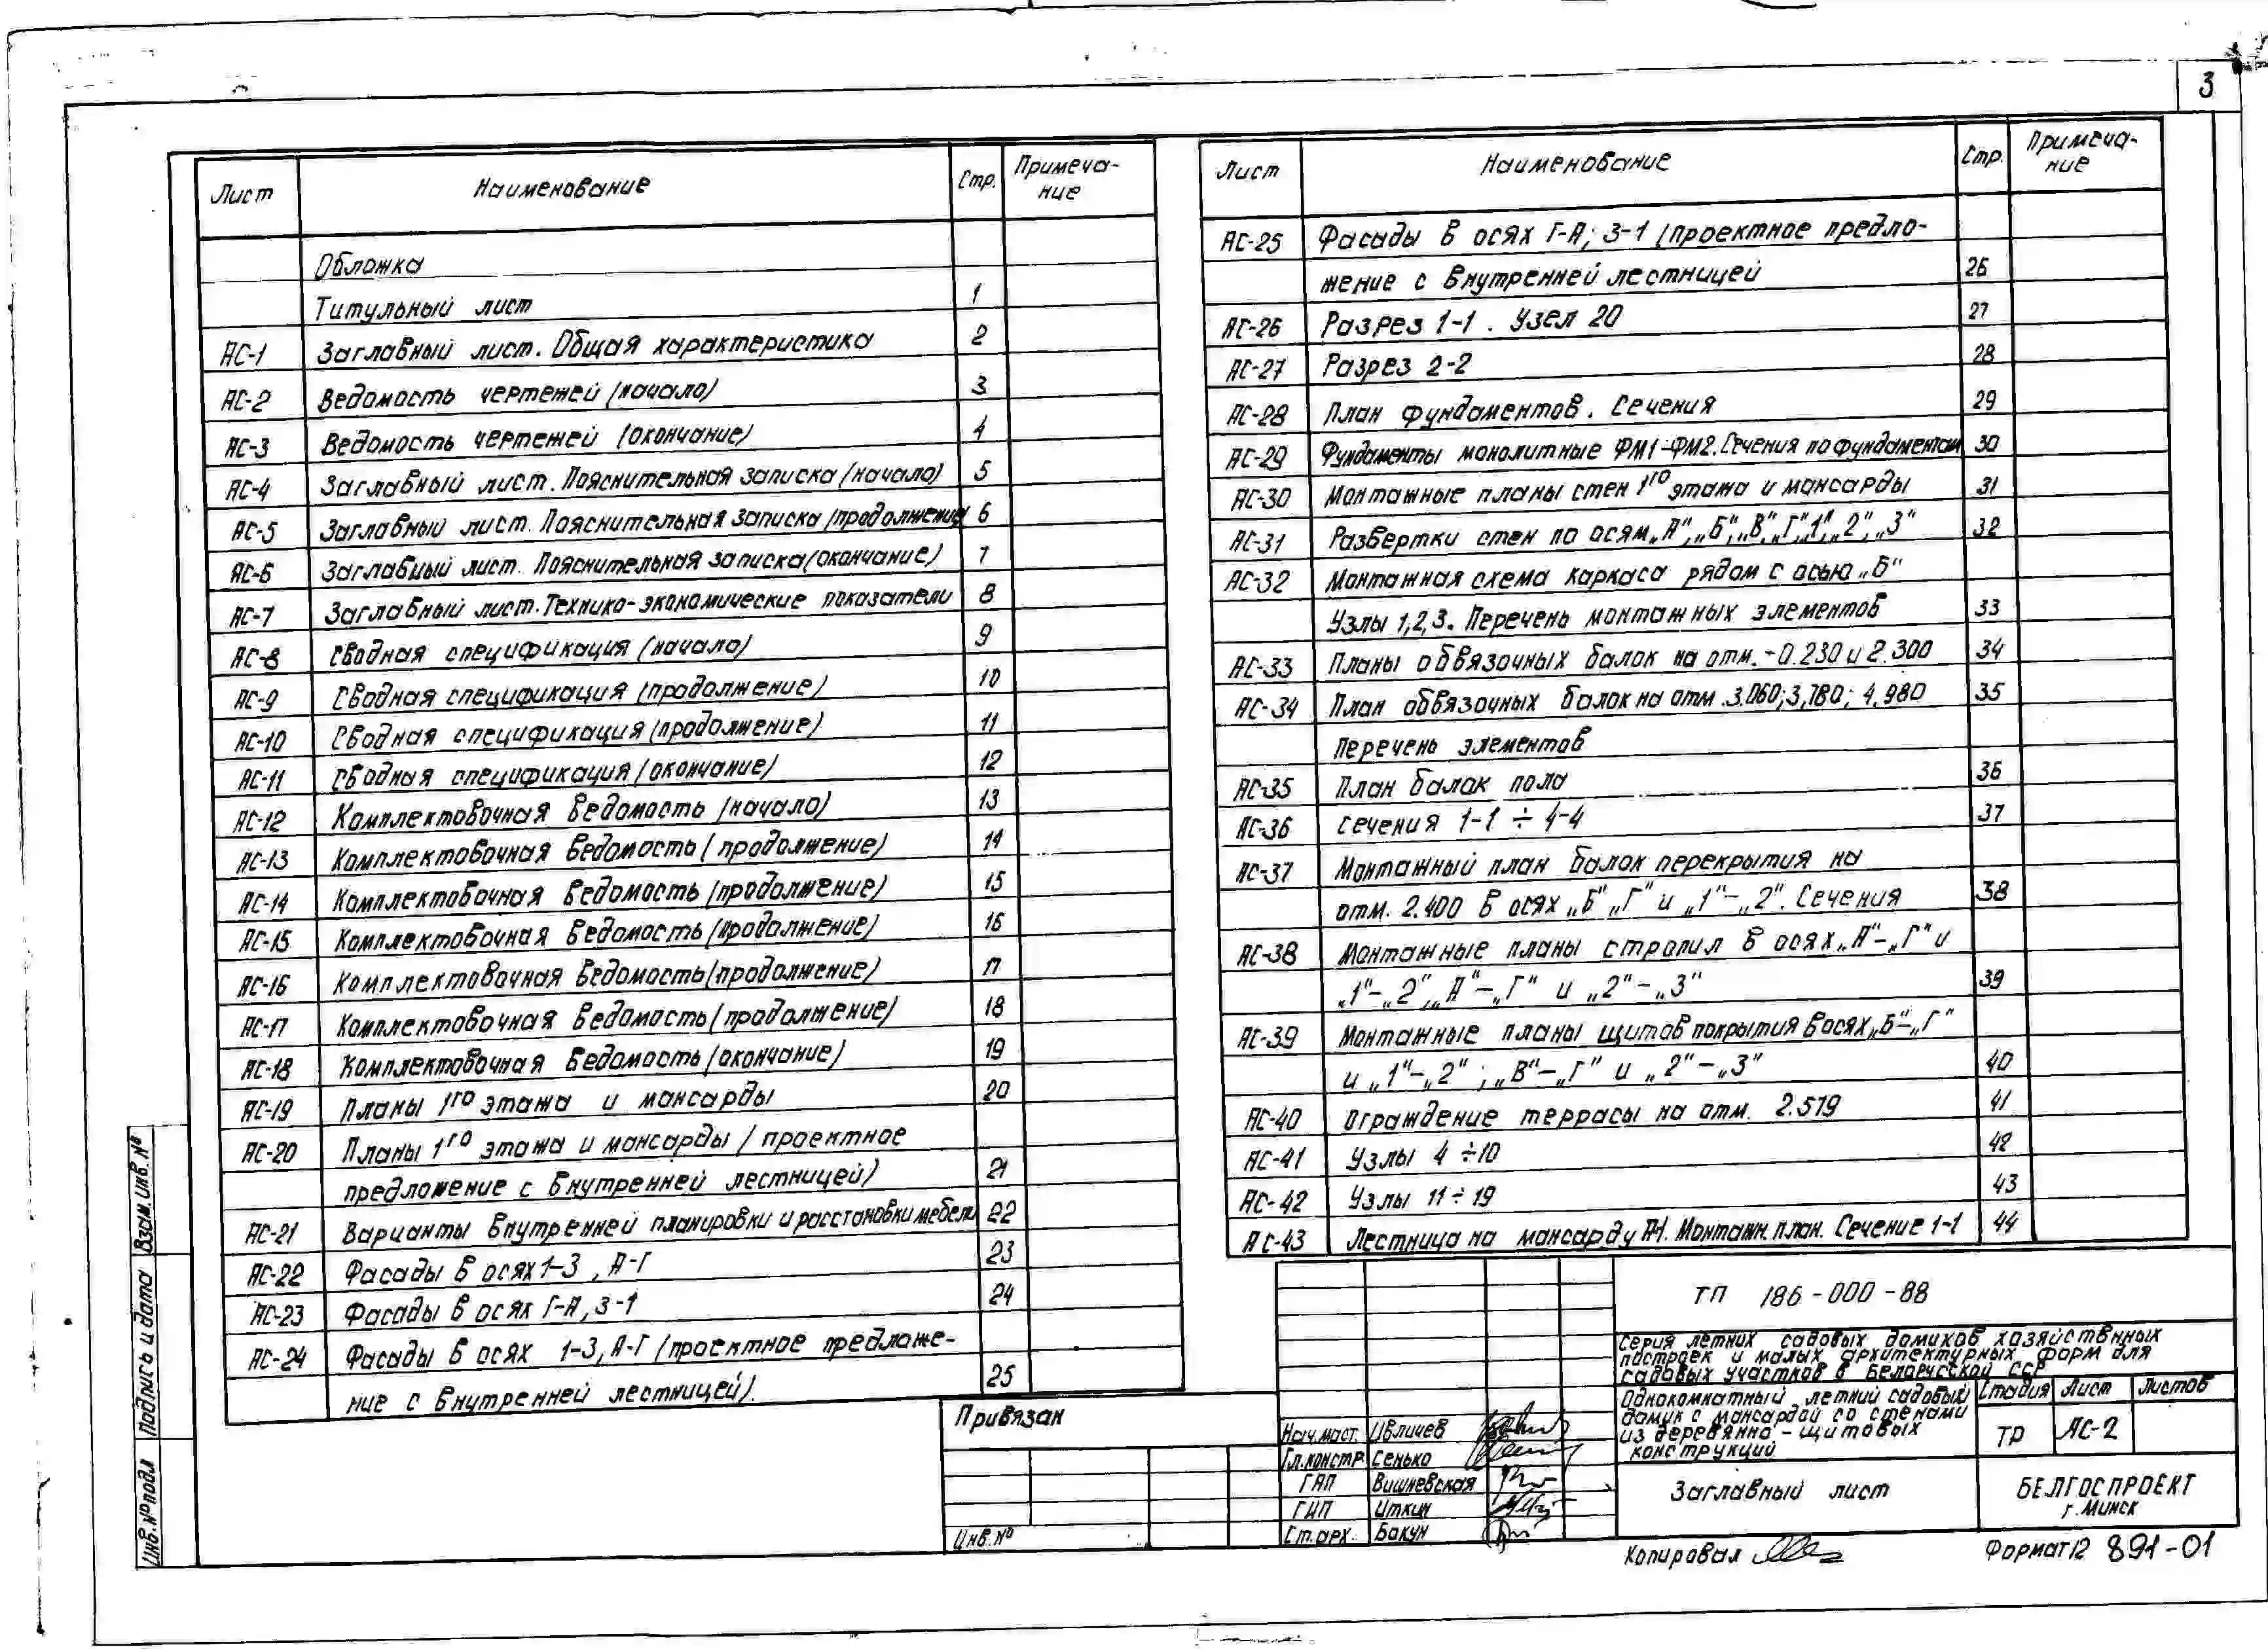 3
Лист Наименование Стр. Примеча-
ние
Обложка
Титульный лист 1
АС-1 Заглавный лист. Общая характеристика 2
АС-2 Ведомость чертежей (начало) 3
АС-3 Ведомость чертежей (окончание) 4
АС-4 Заглавный лист. Пояснительная записка (начало) 5
АС-5 Заглавный лист. Пояснительная записка (продолжение) 6
АС-6 Заглавный лист. Пояснительная записка (окончание) 7
АС-7 Заглавный лист. Технико-экономические показатели 8
АС-8 Сводная спецификация (начало) 9
АС-9 Сводная спецификация (продолжение) 10
АС-10 Сводная спецификация (продолжение) 11
АС-11 Сводная спецификация (окончание) 12
АС-12 Комплектовочная ведомость (начало) 13
АС-13 Комплектовочная ведомость (продолжение) 14
АС-14 Комплектовочная ведомость (продолжение) 15
АС-15 Комплектовочная ведомость (продолжение) 16
АС-16 Комплектовочная ведомость (продолжение) 17
АС-17 Комплектовочная ведомость (продолжение) 18
АС-18 Комплектовочная ведомость (окончание) 19
АС-19 Планы 1го этажа и мансарды 20
АС-20 Планы 1го этажа и мансарды (проектное
предложение с внутренней лестницей) 21
АС-21 Варианты внутренней планировки и расстановки мебели 22
АС-22 Фасады в осях 1-3, А-Г 23
АС-23 Фасады в осях Г-А, 3-1 24
АС-24 Фасады в осях 1-3, А-Г (проектное предложе-
ние с внутренней лестницей). 25
Лист Наименование Стр. Примеча-
ние
АС-25 Фасады в осях Г-А; 3-1 (проектное предло-
жение с внутренней лестницей 26
АС-26 Разрез 1-1. Узел 20 27
АС-27 Разрез 2-2 28
АС-28 План фундаментов. Сечения 29
АС-29 Фундаменты монолитные ФМ1-ФМ2. Сечения по фундаментам 30
АС-30 Монтажные планы стен 1го этажа и мансарды 31
АС-31 Развертки стен по осям „А“, „Б“, „В“, „Г“, „1“, „2“, „3“ 32
АС-32 Монтажная схема каркаса рядом с осью „Б“
Узлы 1,2,3. Перечень монтажных элементов 33
АС-33 Планы обвязочных балок на отм. -0.230 и 2.300 34
АС-34 План обвязочных балок на отм. 3.060; 3,780; 4.980 35
Перечень элементов
АС-35 План балок пола 36
АС-36 Сечения 1-1 ÷ 4-4 37
АС-37 Монтажный план балок перекрытия на
отм. 2.400 в осях „Б“ „Г“ и „1“-„2“. Сечения 38
АС-38 Монтажные планы стропил в осях „А“-„Г“ и
„1“-„2“, „А“-„Г“ и „2“-„3“ 39
АС-39 Монтажные планы щитов покрытия в осях „Б“-„Г“
и „1“-„2“; „В“-„Г“ и „2“-„3“ 40
АС-40 Ограждение террасы на отм. 2.519 41
АС-41 Узлы 4 ÷ 10 42
АС-42 Узлы 11 ÷ 19 43
АС-43 Лестница на мансарду Л-1. Монтажн. план. Сечение 1-1 44
ТП 186-000-88
Серия летних садовых домиков хозяйственных
построек и малых архитектурных форм для
садовых участков в Белорусской ССР
Однокомнатный летний садовый
домик с мансардой со стенами
из деревянно-щитовых
конструкций
Стадия Лист Листов
ТР АС-2
Заглавный лист
БЕЛГОСПРОЕКТ
г. Минск
Привязан
Инв. №
Нач.маст. Ивличев
Гл.констр. Сенько
ГАП Вишневская
ГИП Иткин
Ст.арх. Бакун
Копировал
Формат 12 891-01
Взам. инв. №
Подпись и дата
Инв. № подл